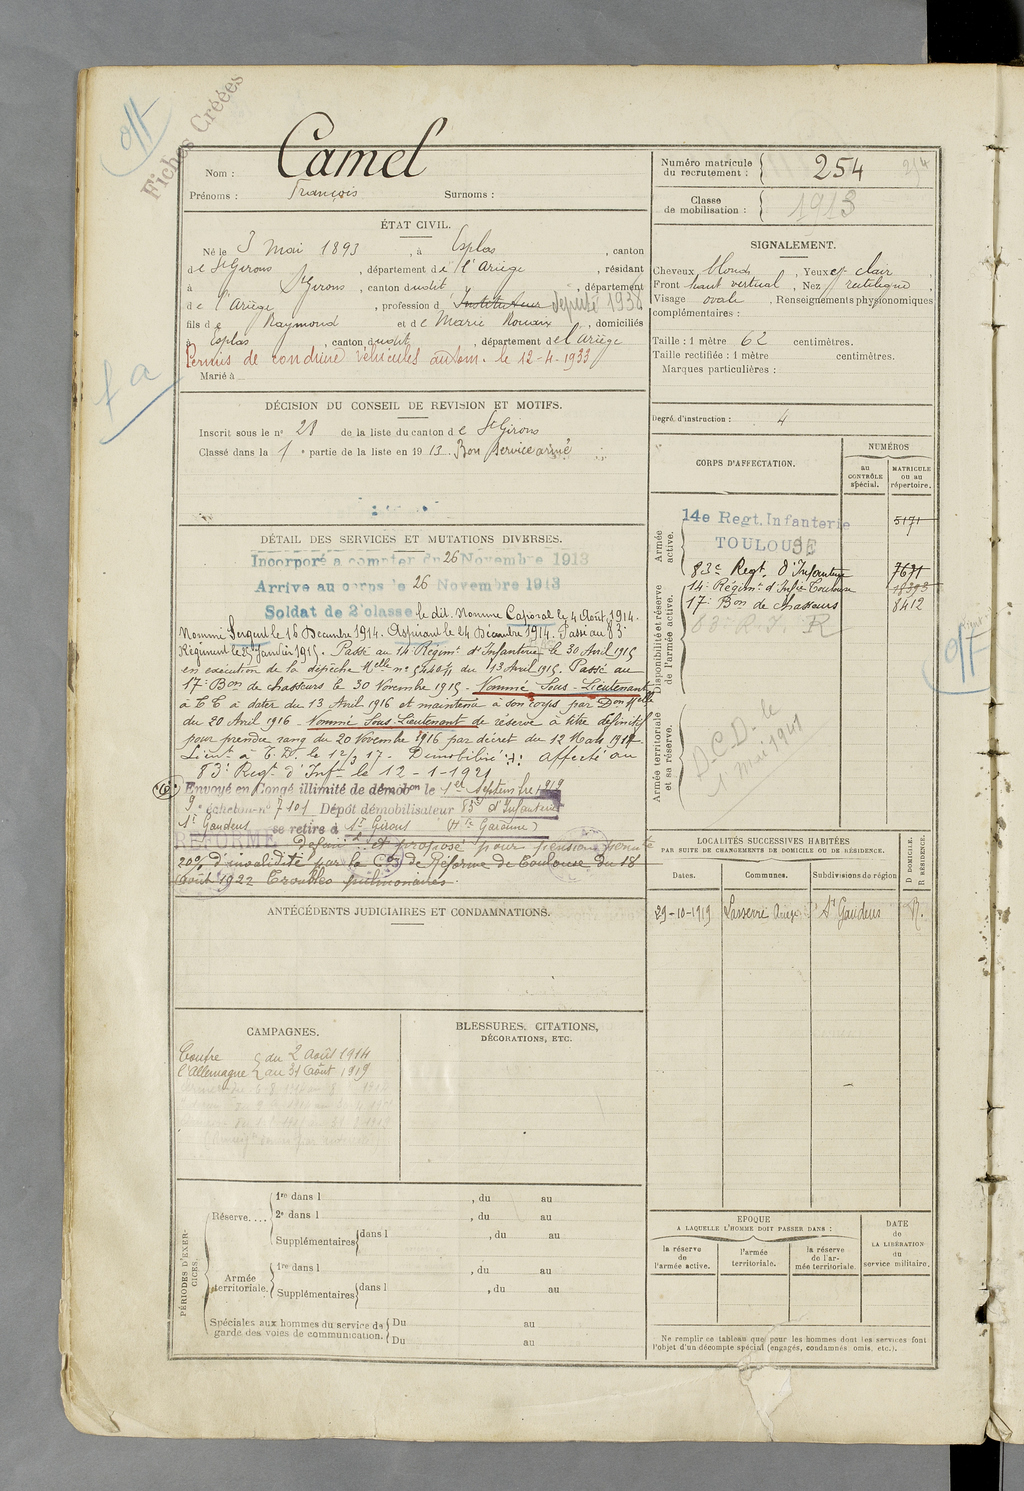 off
Fiches Créées
Nom : Camel
Prénoms : François Surnoms :
Numéro matricule
du recrutement : 254 254
Classe
de mobilisation : 1913
ÉTAT CIVIL.
Né le 3 Mai 1893, à Esplas, canton
de St Girons, département de l'Ariège, résidant
à St Girons, canton dudit, département
de l'Ariège, profession d Instituteur député 1938
fils de Raymond et de Marie Rouaix, domiciliés
à Esplas, canton dudit, département de l'Ariège
Permis de conduire véhicules autom. le 12-4-1933
Marié à
fa
SIGNALEMENT.
Cheveux blonds, Yeux clair
Front haut vertical, Nez rectiligne,
Visage ovale, Renseignements physionomiques
complémentaires :
Taille : 1 mètre 62 centimètres.
Taille rectifiée : 1 mètre centimètres.
Marques particulières :
Degré d'instruction : 4
DÉCISION DU CONSEIL DE REVISION ET MOTIFS.
Inscrit sous le n° 28 de la liste du canton de St Girons
Classé dans la 1e partie de la liste en 1913. Bon service armé
DÉTAIL DES SERVICES ET MUTATIONS DIVERSES.
Incorporé a compter du 26 Novembre 1913
Arrive au corps le 26 Novembre 1913
Soldat de 2e classe le dit. Nommé Caporal le 4 Août 1914.
Nommé Sergent le 16 Décembre 1914. Aspirant le 24 Décembre 1914. Passé au 83e
Régiment le Janvier 1915. Passé au 14e Régimt d'Infanterie le 30 Avril 1915
en exécution de la dépêche Melle n° du 13 Avril 1915. Passé au
17e Bon de chasseurs le 30 Novembre 1915. Nommé Sous-Lieutenant
à T.T. à dater du 13 Avril 1916 et maintenu à son corps par Don Melle
du 20 Avril 1916. Nommé Sous-Lieutenant de réserve à titre définitif
pour prendre rang du 20 Novembre 1916 par décret du 12 Mars 1917.
Lieut à T.D. le 12/3 17. Démobilisé affecté au
83e Regt d'Infie le 12-1-1921
Envoyé en Congé illimité de démobon le 1er Septembre 1919
9e échelon n° 7101 Dépôt démobilisateur 83e d'Infanterie
St Gaudens se retire à St Girons (Hte Garonne)
RÉFORME et proposé pour pension
20% d'invalidité par la Con de Réforme de Toulouse du 18
Août 1922 Troubles pulmonaires.
CORPS D'AFFECTATION.
NUMÉROS
au
CONTRÔLE
spécial.
MATRICULE
ou au
répertoire.
Armée
active.
14e Regt. Infanterie 5171
TOULOUSE
83e Regt. d'Infanterie 7671
Disponibilité et réserve
de l'armée active.
14e Régimt d'Infie Toulouse 18393
17e Bon de chasseurs 8412
83e R.I. R
off
Armée territoriale
et sa réserve.
D.C.D. le
1 Mai 1941
LOCALITÉS SUCCESSIVES HABITÉES
PAR SUITE DE CHANGEMENTS DE DOMICILE OU DE RÉSIDENCE.
Dates. Communes. Subdivisions de région
D DOMICILE.
R RÉSIDENCE.
29-10-1919 Lasserre Ariège St Gaudens R.
ANTÉCÉDENTS JUDICIAIRES ET CONDAMNATIONS.
CAMPAGNES.
Contre du 2 Août 1914
l'Allemagne au 31 Août 1919
BLESSURES, CITATIONS,
DÉCORATIONS, ETC.
PÉRIODES D'EXERCICES.
Réserve....
1re dans l , du au
2e dans l , du au
Supplémentaires dans l , du au
Armée
territoriale.
1re dans l , du au
Supplémentaires dans l , du au
Spéciales aux hommes du service de
garde des voies de communication.
Du au
Du au
EPOQUE
A LAQUELLE L'HOMME DOIT PASSER DANS :
la réserve
de
l'armée active.
l'armée
territoriale.
la réserve
de l'armée
territoriale.
DATE
de
LA LIBÉRATION
du
service militaire.
Ne remplir ce tableau que pour les hommes dont les services font
l'objet d'un décompte spécial (engagés, condamnés, omis, etc.).